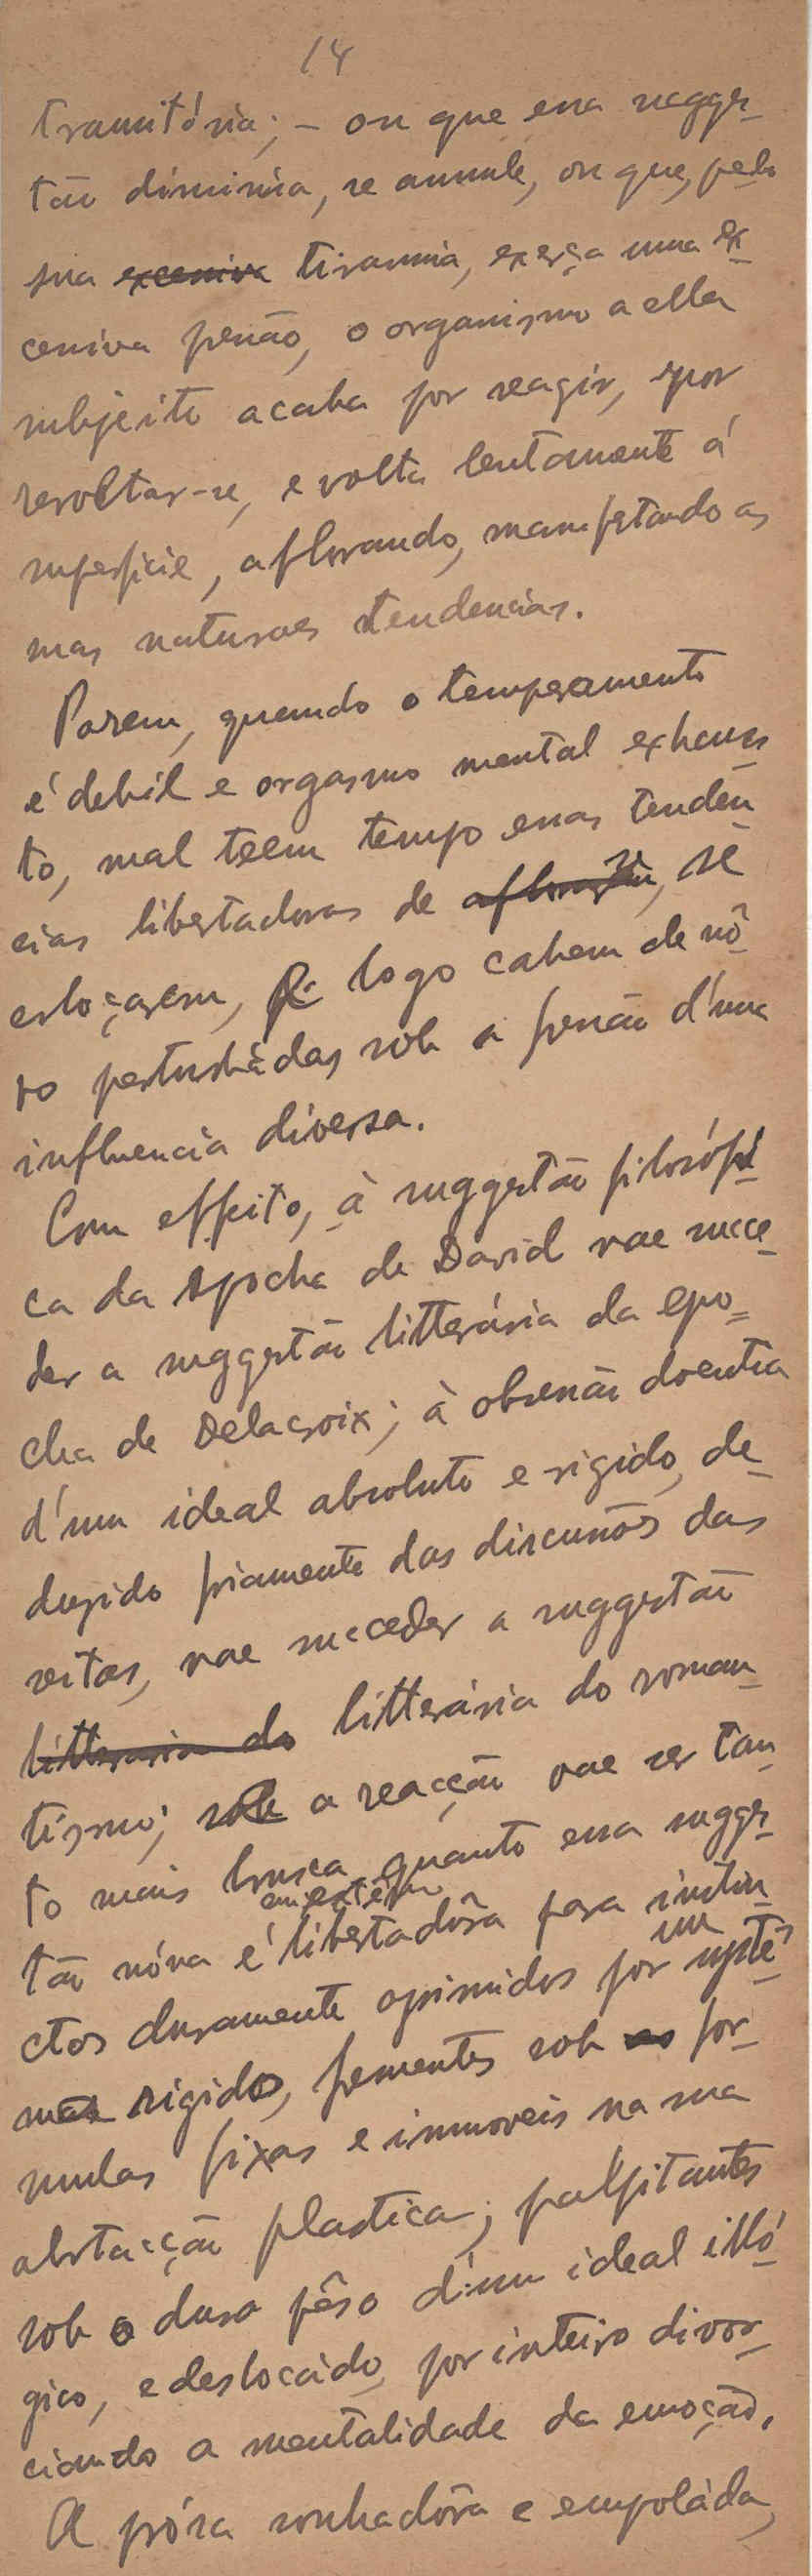 14
transitória; – ou que essa sugges_
tão diminúa, se annule, ou que, pela
sua excessiva tirannia, exerça uma ex_
cessiva pressão, o organismo a ella
subjeito acaba por reagir, por
revoltar-se, e volta lentamente á
superficie, aflorando, manifestando as
suas naturaes tendencias.
Porem, quando o temperamento
é debil e orgasmo mental exhaus_
to, mal teem tempo essas tendên_
cias libertadoras de se
esboçarem, e logo cahem de nô_
vo perturbádas sob a pressão d'uma
influencia diversa.
Com effeito, à suggestão filosófi_
ca da epocha de David vae succe_
der a suggestão litterária da epo=
cha de Delacroix; à obsessão doentia
d'um ideal absoluto e rigido, de_
duzido friamente das discussões das
seitas, vae succeder a suggestão
litteraria do litterária do roman_
tismo; a reacção vae ser tan_
to mais brusca quanto essa sugges_
tão nóva é libertadôra para instin_
ctos duramente oprimidos por um systê_
ma rigido, frementes sob for_
mulas fixas e immoveis na sua
abstracção plastica; palpitantes
sob o duro pêso d'um ideal illó_
gico, e deslocádo, por inteiro divor_
ciando a mentalidade da emoção.
A prósa sonhadôra e empoláda,